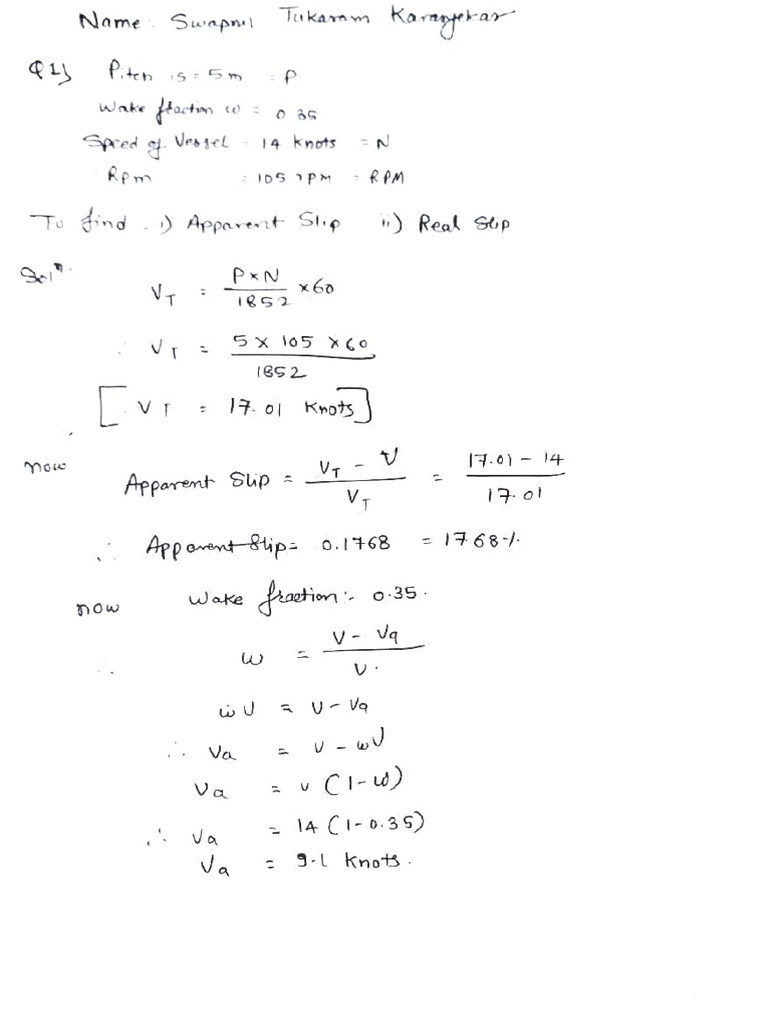 Name: Swapnil Tukaram Karanjekar
Q1) Pitch is = 5m = P
Wake fraction w = 0.35
Speed of Vessel : 14 knots = N
Rpm : 105 rpm = RPM
To find - i) Apparent Slip ii) Real Slip
Solⁿ.
V_T = P×N / 1852 ×60
∴ V_T = 5 × 105 × 60 / 1852
[V_T = 17.01 Knots]
now Apparent Slip = V_T - V / V_T = 17.01 - 14 / 17.01
∴ Apparent Slip = 0.1768 = 17.68 %.
now Wake fraction :- 0.35.
∴ w = V - Va / V.
wV = V - Va
∴ Va = V - wV
Va = V (1-w)
∴ Va = 14 (1-0.35)
Va = 9.1 Knots.